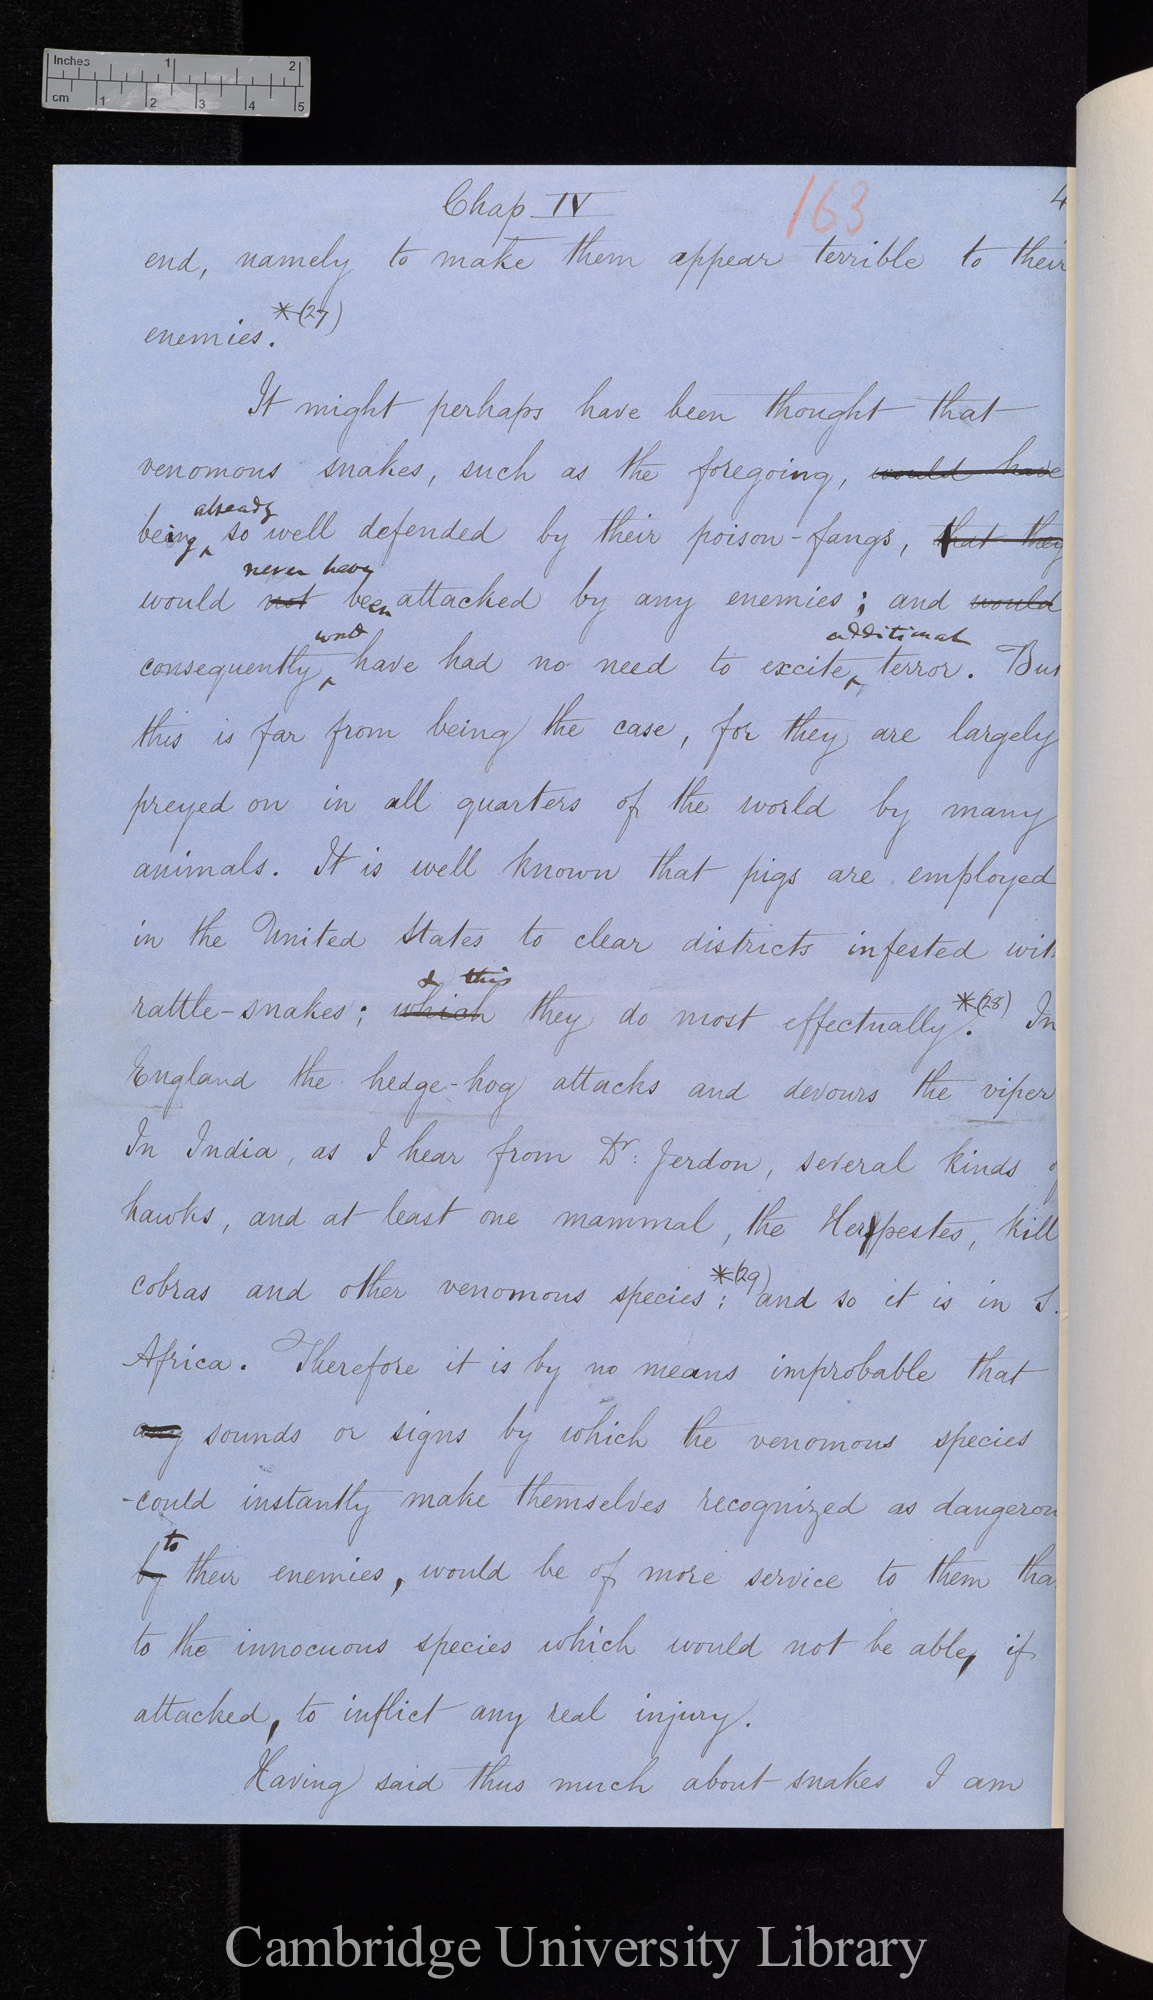 Inches 1 2
cm 1 2 3 4 5
Chap IV 163 4
end, namely to make them appear terrible to their
enemies.*(27)
It might perhaps have been thought that
venomous snakes, such as the foregoing, would have
already
being so well defended by their poison-fangs, that they
never have
would not been attacked by any enemies; and would
wod additional
consequently have had no need to excite terror. But
this is far from being the case, for they are largely
preyed on in all quarters of the world by many
animals. It is well known that pigs are employed
in the United States to clear districts infested with
& this
rattle-snakes; which they do most effectually*(28). In
England the hedge-hog attacks and devours the viper
In India, as I hear from Dr: Jerdon, several kinds
hawks, and at least one mammal, the Herpestes, kill
cobras and other venomous species*(29); and so it is in S.
Africa. Therefore it is by no means improbable that
any sounds or signs by which the venomous species
could instantly make themselves recognized as dangerou
to
by their enemies, would be of more service to them tha
to the innocuous species which would not be able, if
attacked, to inflict any real injury.
Having said thus much about snakes I am
Cambridge University Library